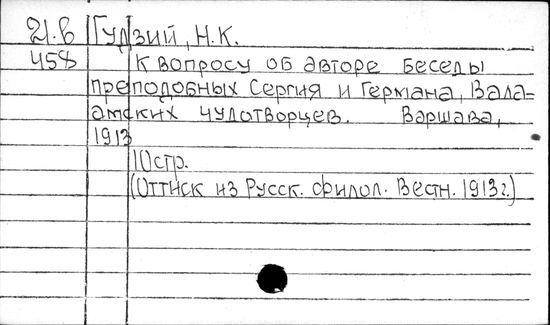 21.6 Гудзий, Н.К.
458 К вопросу об авторе Беседы
преподобных Сергия и Германа, Вала-
амских чудотворцев. Варшава,
1913
10стр.
(Оттиск из Русск. филол. Вестн. 1913г.)